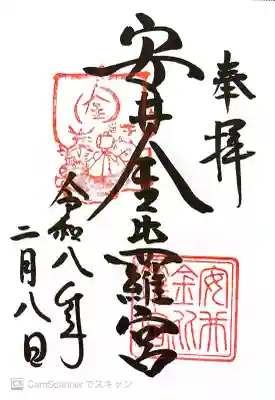 奉拝
安井金比羅宮
令和八年
二月八日
CS CamScannerでスキャン